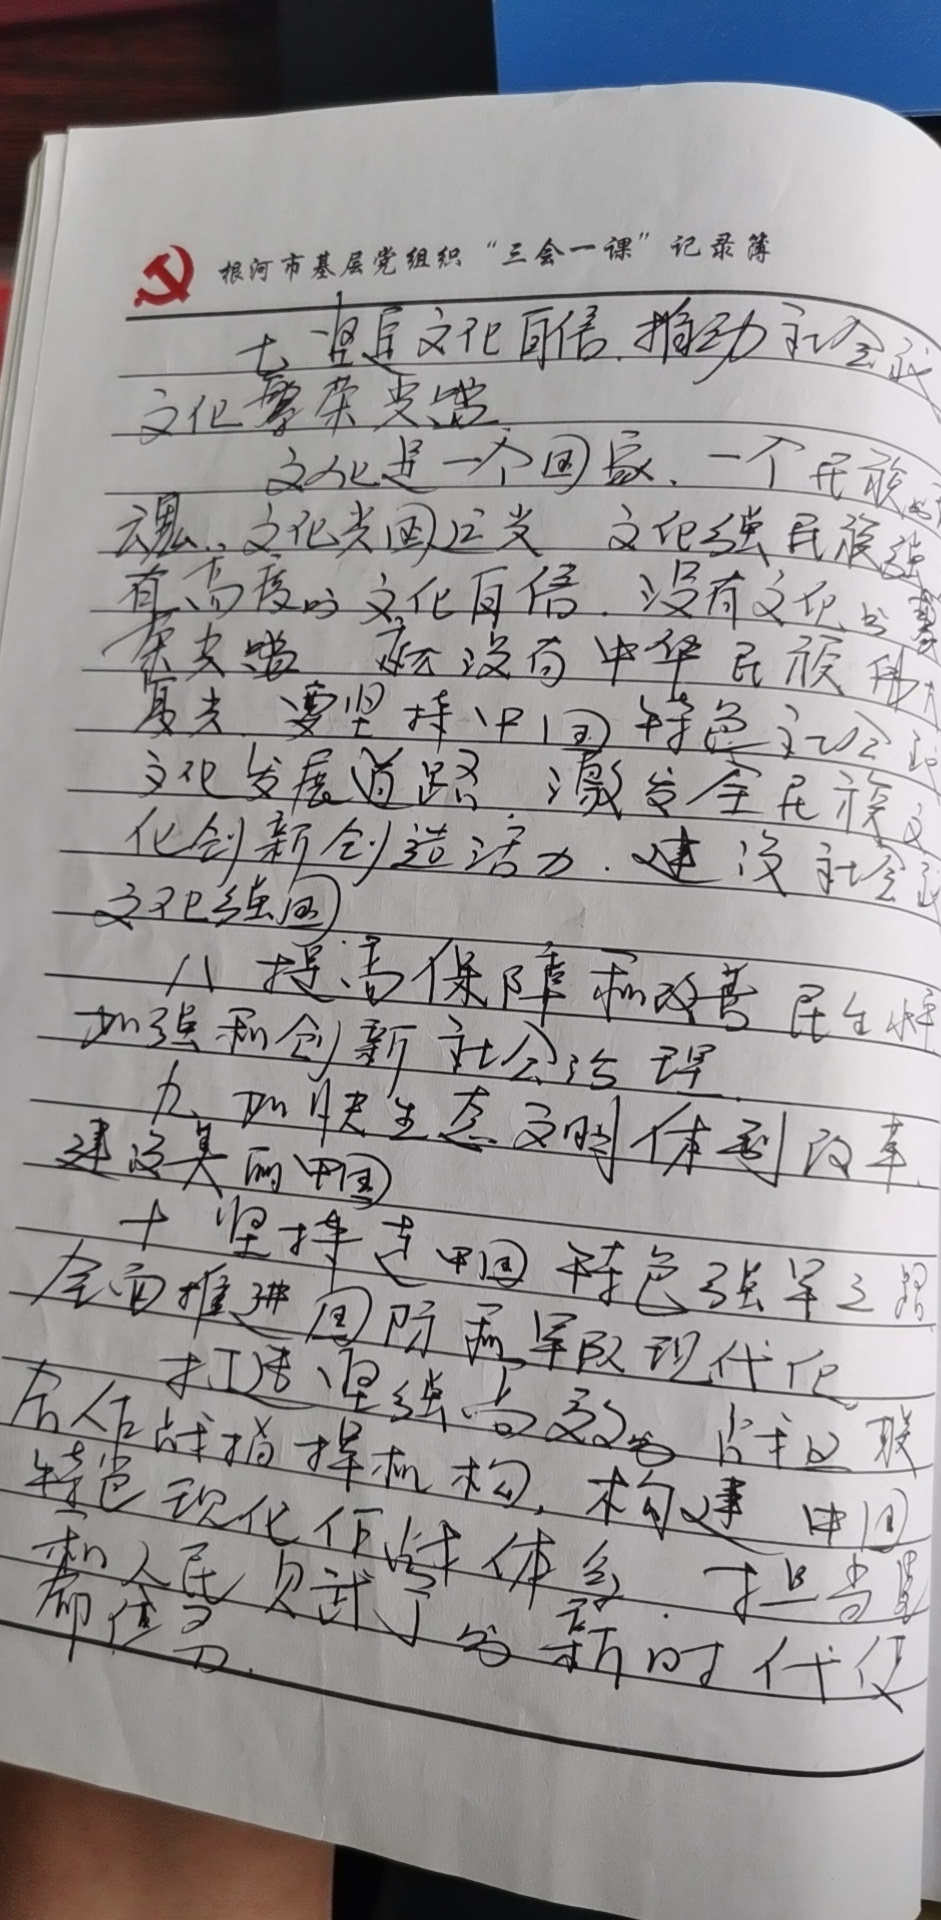 根河市基层党组织“三会一课”记录簿
七、坚定文化自信,推动社会
文化繁荣兴盛
文化是一个国家、一个民族的
魂。文化兴国运兴 文化强民族强
有高度的文化自信,没有文化的繁
荣兴盛 就没有中华民族伟大
复兴 要坚持中国特色社会
文化发展道路 激发全民族文
化创新创造活力,建设社会
文化强国
八 提高保障和改善民生水平
加强和创新社会治理
九、加快生态文明体制改革,
建设美丽中国
十 坚持走中国特色强军之路
全面推进国防和军队现代化
打造坚强高效的战区联
合作战指挥机构,构建中国
特色现化作战体系,担当党
和人民赋予的新时代使